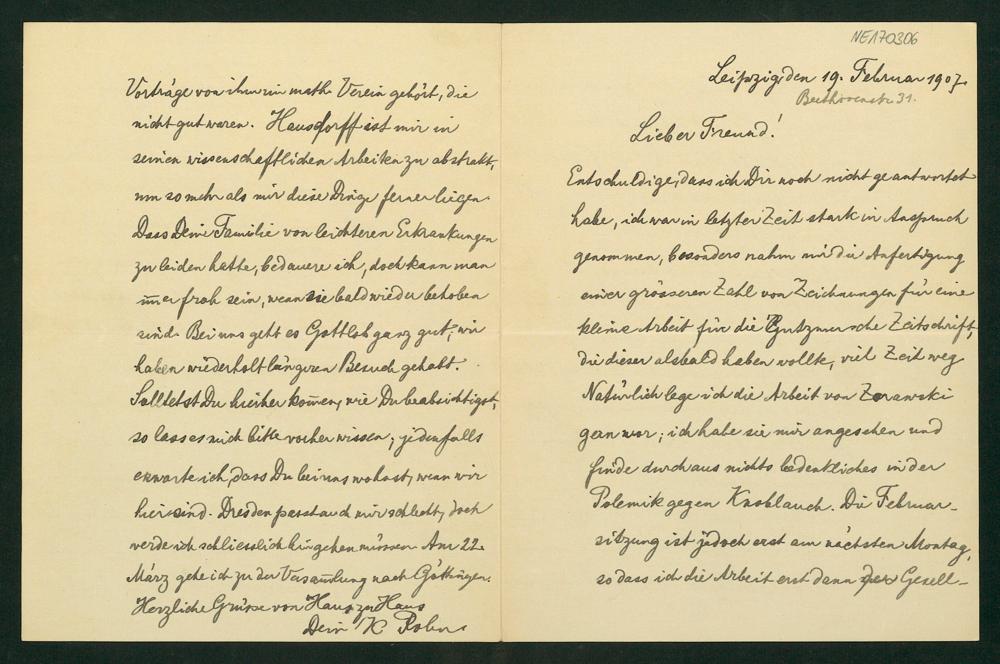 NE170306
Leipzig den 19. Februar 1907.
Beethovenstr 31.
Lieber Freund!
Entschuldige, dass ich Dir noch nicht geantwortet
habe, ich war in letzter Zeit stark in Anspruch
genommen, besonders nahm mir die Anfertigung
einer grösseren Zahl von Zeichnungen für eine
kleine Arbeit für die Gutzmersche Zeitschrift,
die dieser alsbald haben wollte, viel Zeit weg
Natürlich lege ich die Arbeit von Zorawski
gern vor; ich habe sie mir angesehen und
finde durchaus nichts bedenkliches in der
Polemik gegen Knoblauch. Die Februar-
sitzung ist jedoch erst am nächsten Montag,
so dass ich die Arbeit erst dann der Gesell-
Vorträge von ihm im math. Verein gehört, die
nicht gut waren. Hausdorff ist mir in
seinen wissenschaftlichen Arbeiten zu abstrakt,
um so mehr als mir diese Dinge ferner liegen.
Dass Deine Familie von leichteren Erkrankungen
zu leiden hatte, bedauere ich, doch kann man
im̅er froh sein, wenn sie bald wieder behoben
sind. Bei uns geht es Gottlob ganz gut; wir
haben wiederholt längeren Besuch gehabt.
Solltetst Du hierher kom̅en, wie Du beabsichtigst,
so lass es mich bitte vorher wissen; jedenfalls
erwarte ich, dass Du bei uns wohnst, wenn wir
hier sind. Dresden passt auch mir schlecht, doch
werde ich schliesslich hingehen müssen. Am 22.
März gehe ich zu der Versam̅lung nach Göttingen.
Herzliche Grüsse von Haus zu Haus
Dein K Rohn